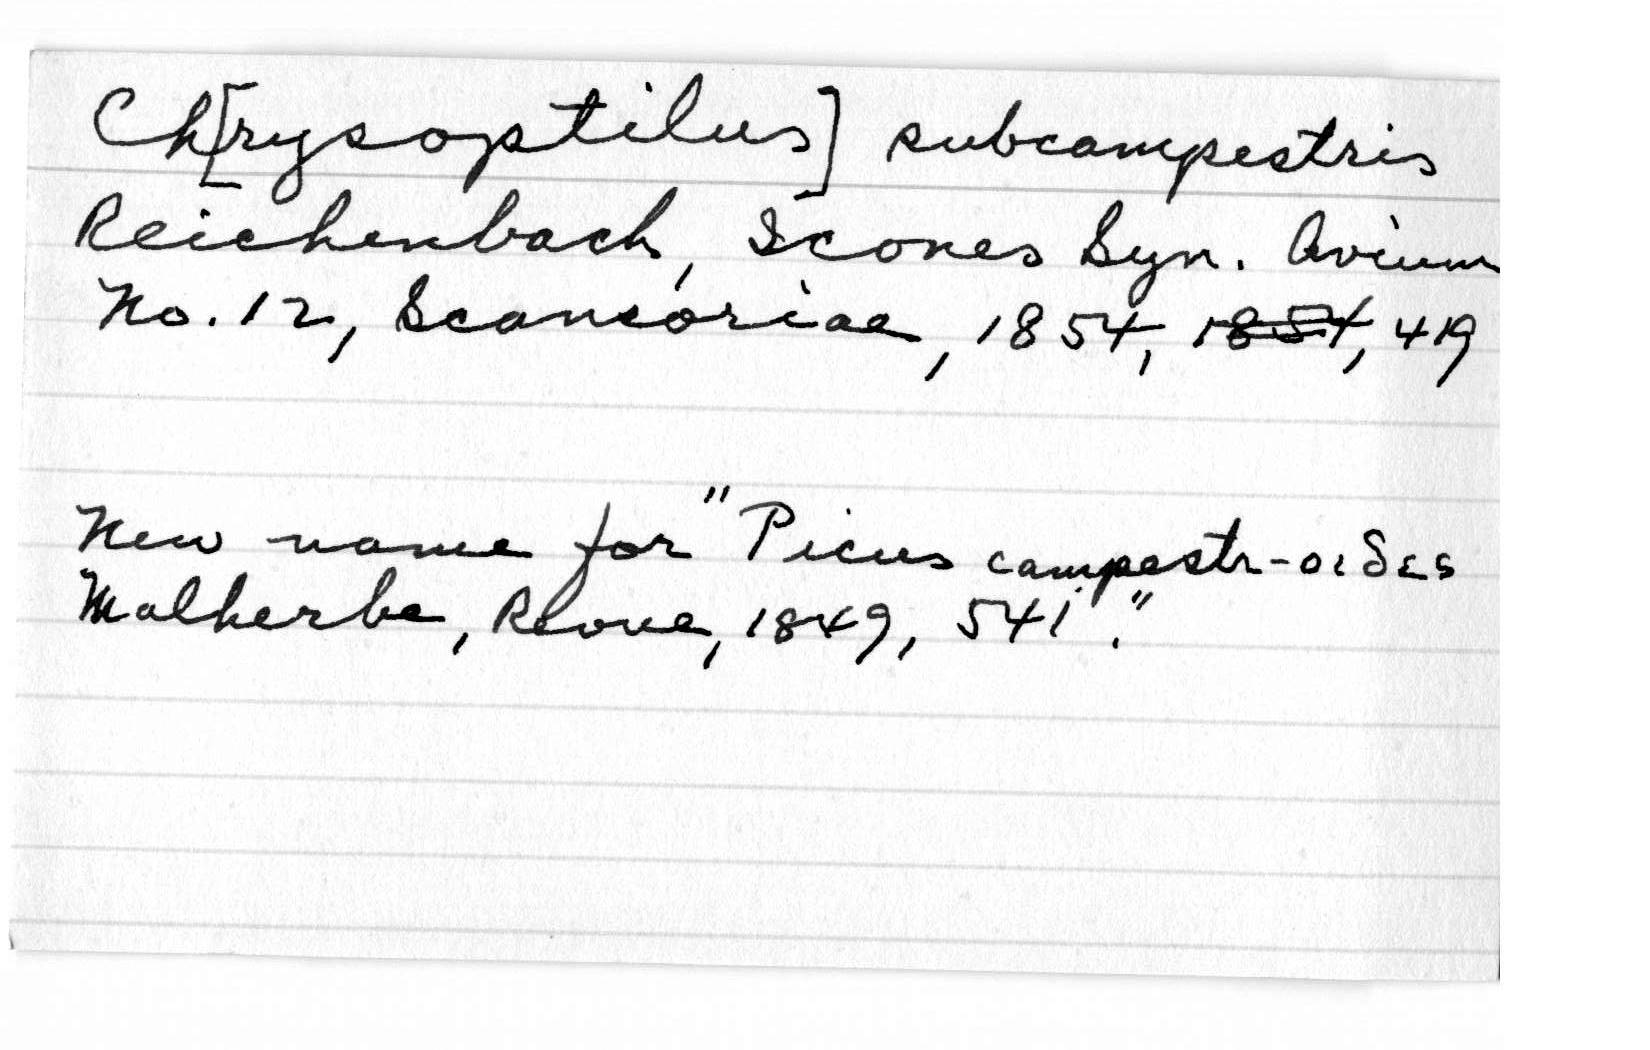 Ch[rysoptilus] subcampestris
Reichenbach, Icones Syn. Avium
No. 12, Scansoriae, 1854, 1854, 419
New name for "Picus campestr-οιδες
Malherbe, Revue, 1849, 541."